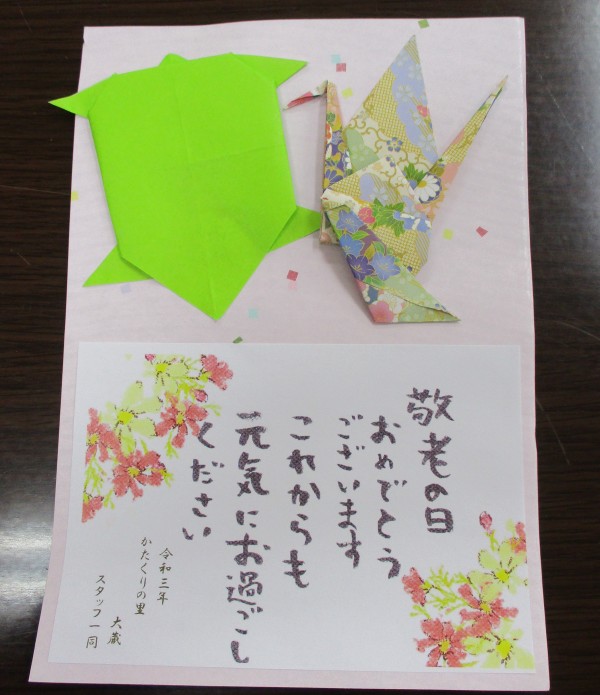 敬老の日
おめでとう
ございます
これからも
元気にお過ごし
ください
令和三年
かたくりの里
大蔵
スタッフ一同